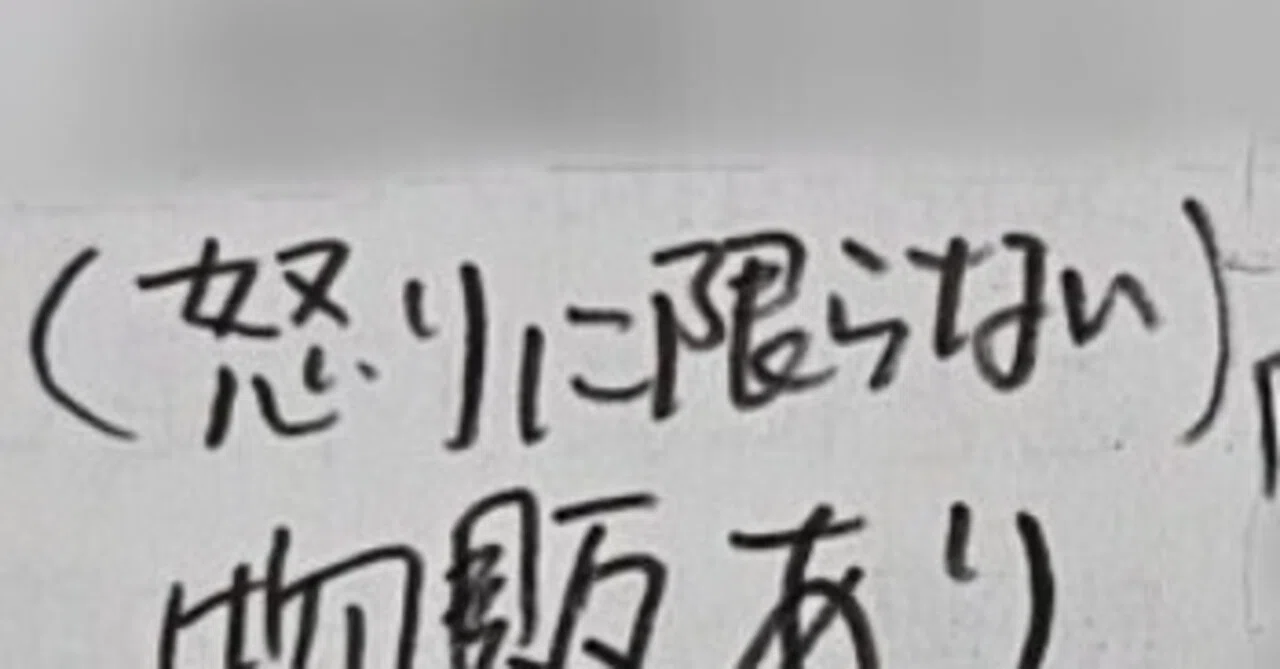 (怒りに限らない)
物販あり